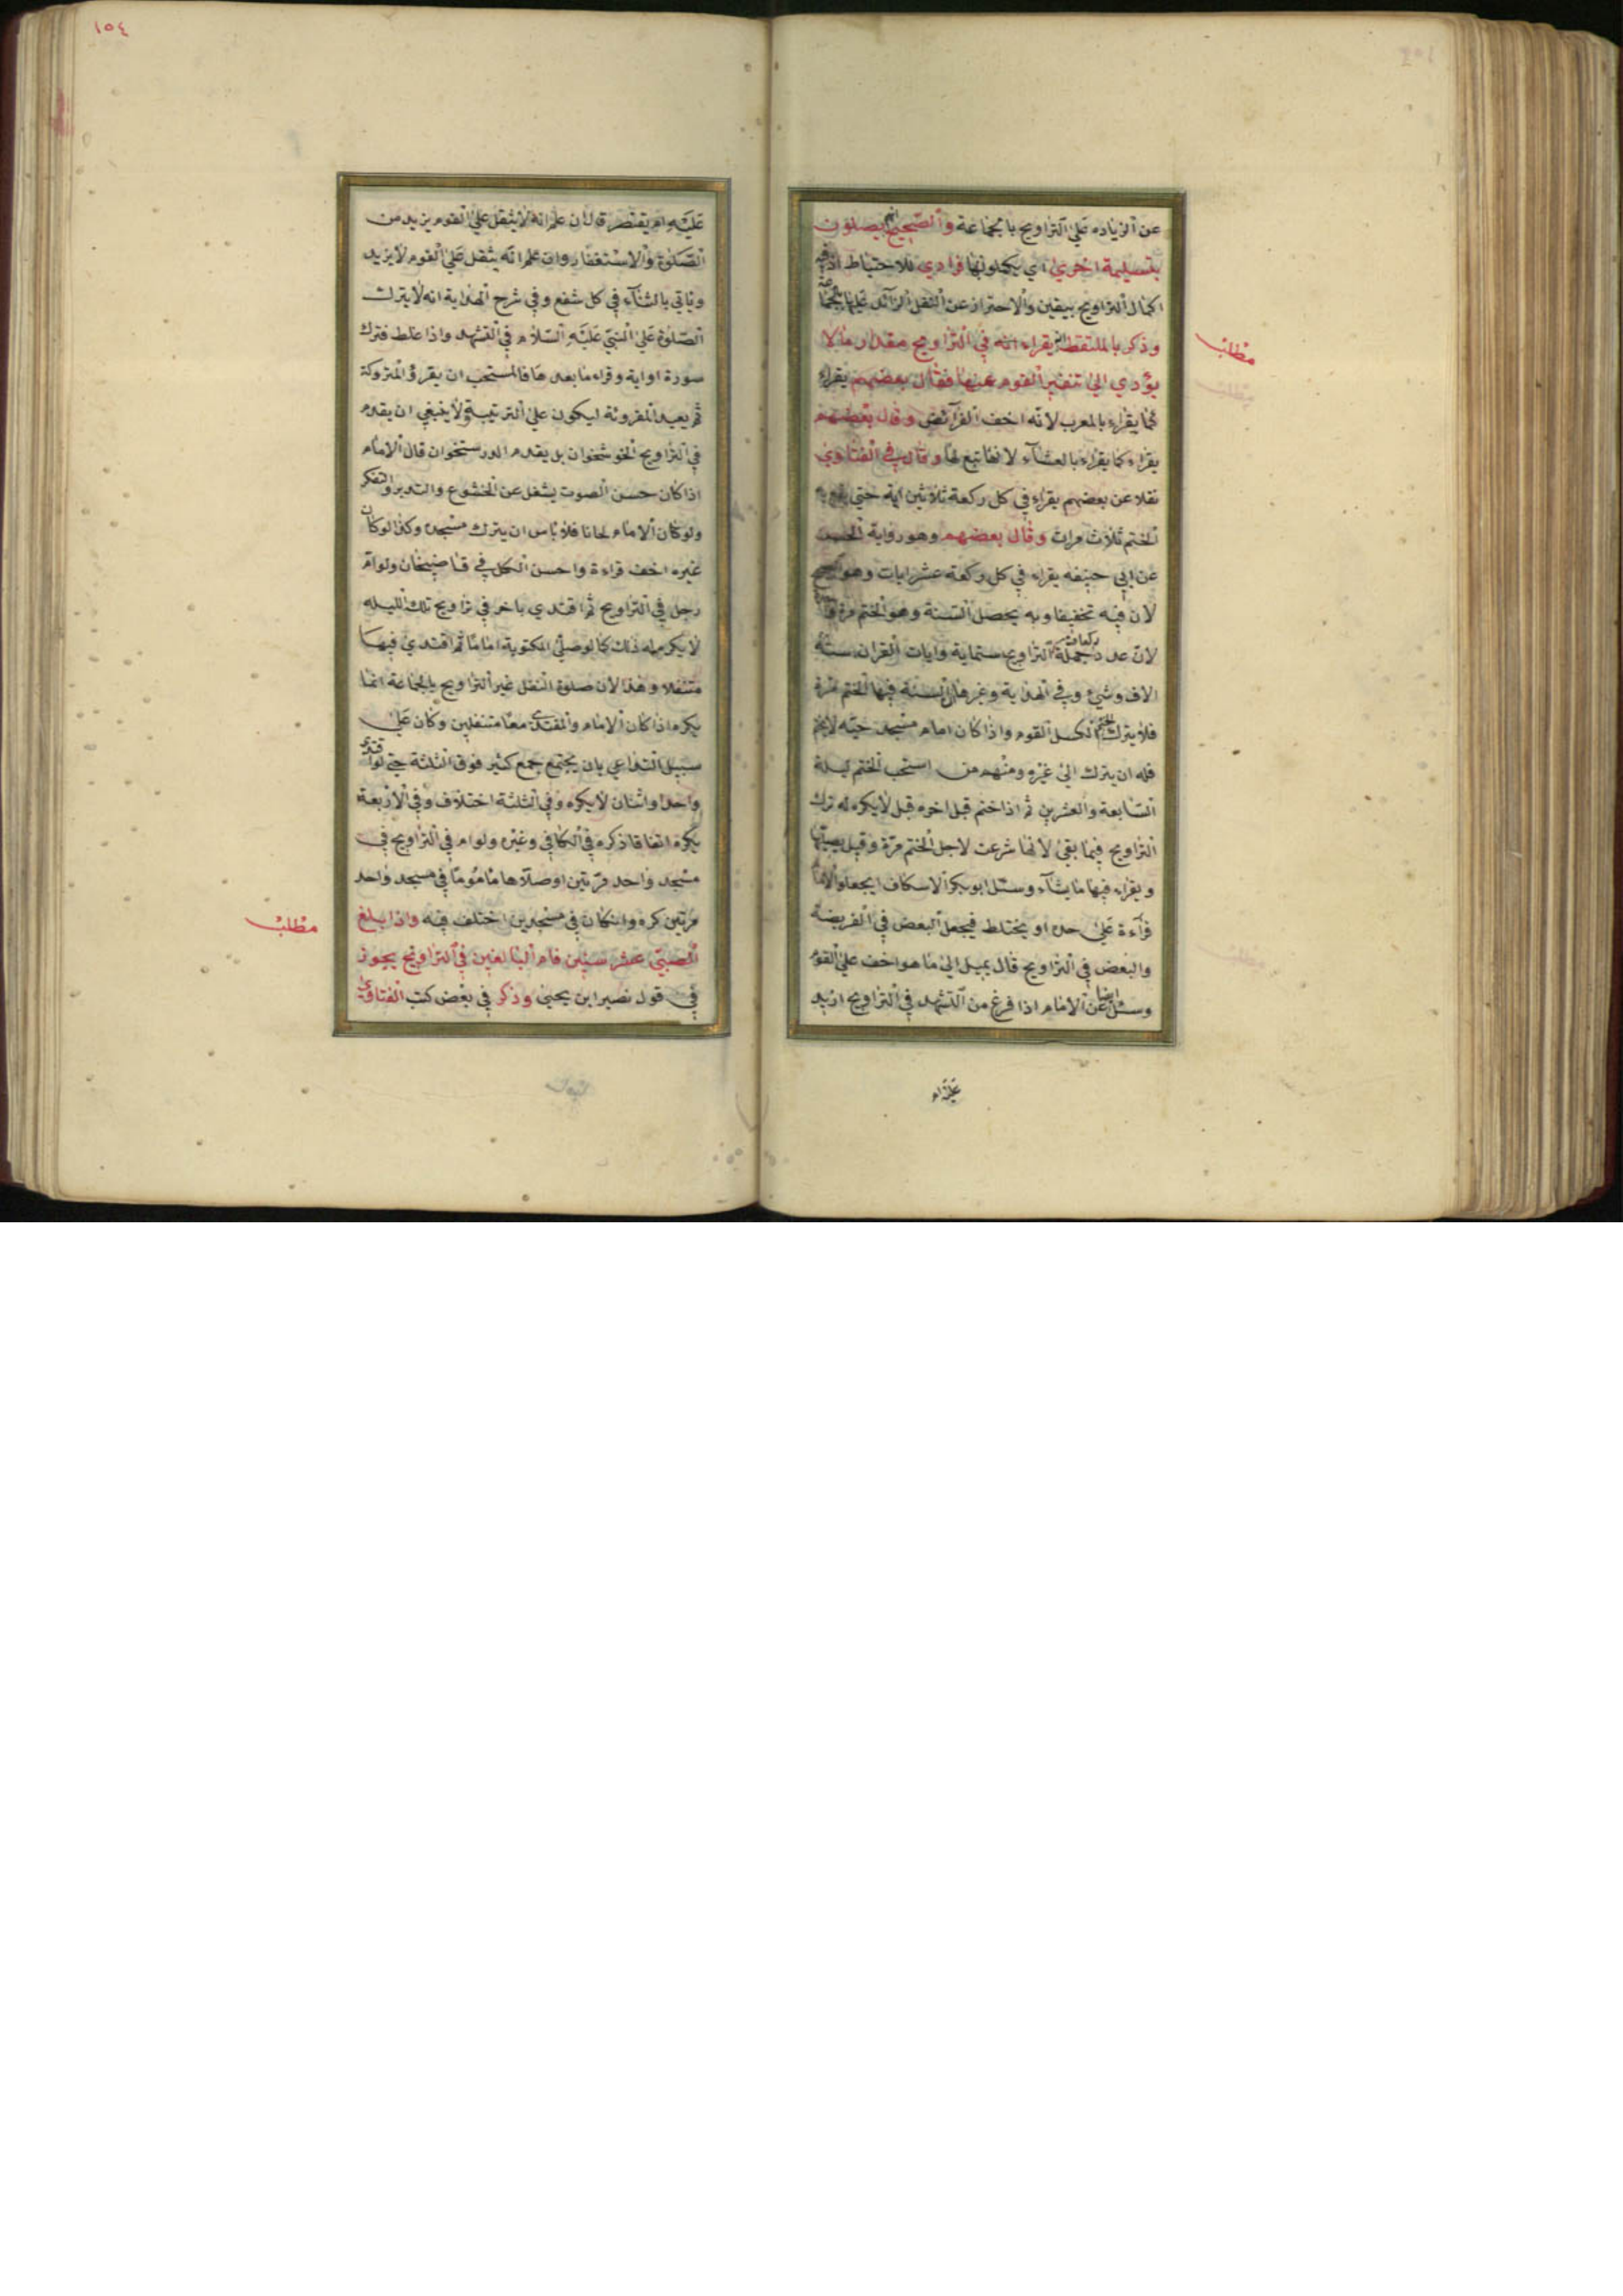 عن الزياده علي التراويح بالجماعة والصحيح انهم يصلون
بتسليمة اخري اي يكملونها فرادي فلاحتياط اذ فيه
اكمال التراويح بيقين والاحتراز عن النفل الزآئد عليها بجماعة
وذكر بالملتقط انه يقراء في التراويح مقدار مالا
يؤدي الي تنفير القوم عنها فقال بعضهم يقراء
كما يقراء بالمغرب لانه اخف الفرآئض وقال بعضهم
يقراء كما يقراء بالعشآء لانها تبع لها وقال في الفتاوي
نقلا عن بعضهم يقراء في كل ركعة ثلاثين اية حتي يقع به
الختم ثلاث مرات وقال بعضهم وهو رواية الحسن
عن ابي حنيفه يقراء في كل ركعة عشرايات وهو الصحيح
لان فيه تخفيفا وبه يحصل السنة وهو الختم مرة
لان عدد ركعات جملة التراويح ستماية وايات القران ستة
الاف وشئ وفي الهداية وغيرها ان السنة فيها الختم مرة
فلا يترك الختم لكسل القوم واذا كان امام مسجد حيه لا يختم
فله ان يترك الي غيره ومنهم من استحب الختم ليلة
السابعة والعشرين ثم اذا ختم قبل اخره قبل لايكره له ترك
التراويح فيما بقي لانها شرعت لاجل الختم مرة وقيل يصليها
ويقراء فيها مايشآء وسئل ابوبكر الاسكاف ايجعل الامام
قرآءة علي حده او يختلط فيجعل البعض في الفريضة
والبعض في التراويح قال يميل الي ما هو اخف علي القوم
وسئل ايضا عن الامام اذا فرغ من التشهد في التراويح ازيد
مطلب
عليه ام
١٥٤
عليه ام يقتصر قال ان علم انه لايثقل علي القوم يزيد من
الصلوة والاستغفار وان علم انه يثقل علي القوم لايزيد
وياتي بالثنآء في كل شفع وفي شرح الهداية انه لايترك
الصلوة علي النبي عليه السلام في التشهد واذا غلط فترك
سورة او اية وقراء مابعدها فالمستحب ان يقرؤ المتروكة
ثم يعيد المقروئة ليكون علي الترتيب ولا ينبغي ان يقدم
في التراويح الخوشخوان بل يقدم الدرستخوان قال الامام
اذا كان حسن الصوت يشغل عن الخشوع والتدبر والتفكر
ولو كان الامام لحانا فلاباس ان يترك مسجده وكذا لو كان
غيره اخف قراءة واحسن الكل في قاضيخان ولو ام
رجل في التراويح ثم اقتدي باخر في تراويح تلك الليله
لايكره له ذلك كما لو صلي المكتوبة اماما ثم اقتدي فيها
متنفلا وهذا لان صلوة النفل غير التراويح بالجماعة انما
يكره اذا كان الامام والمقتدي معا متنفلين وكان علي
سبيل التداعي بان يجتمع جمع كثير فوق الثلثة حتي لو اقتدي
واحد او اثنان لايكره وفي الثلثة اختلاف وفي الاربعة
يكره اتفاقا ذكره في الكافي وغيره ولو ام في التراويح في
مسجد واحد مرتين اوصلاها ماموما في مسجد واحد
مرتين كره وانكان في مسجدين اختلف فيه واذا بلغ
الصبي عشر سنين فام البالغين في التراويح يجوز
في قول نصير ابن يحيي وذكر في بعض كتب الفتاوي
مطلب